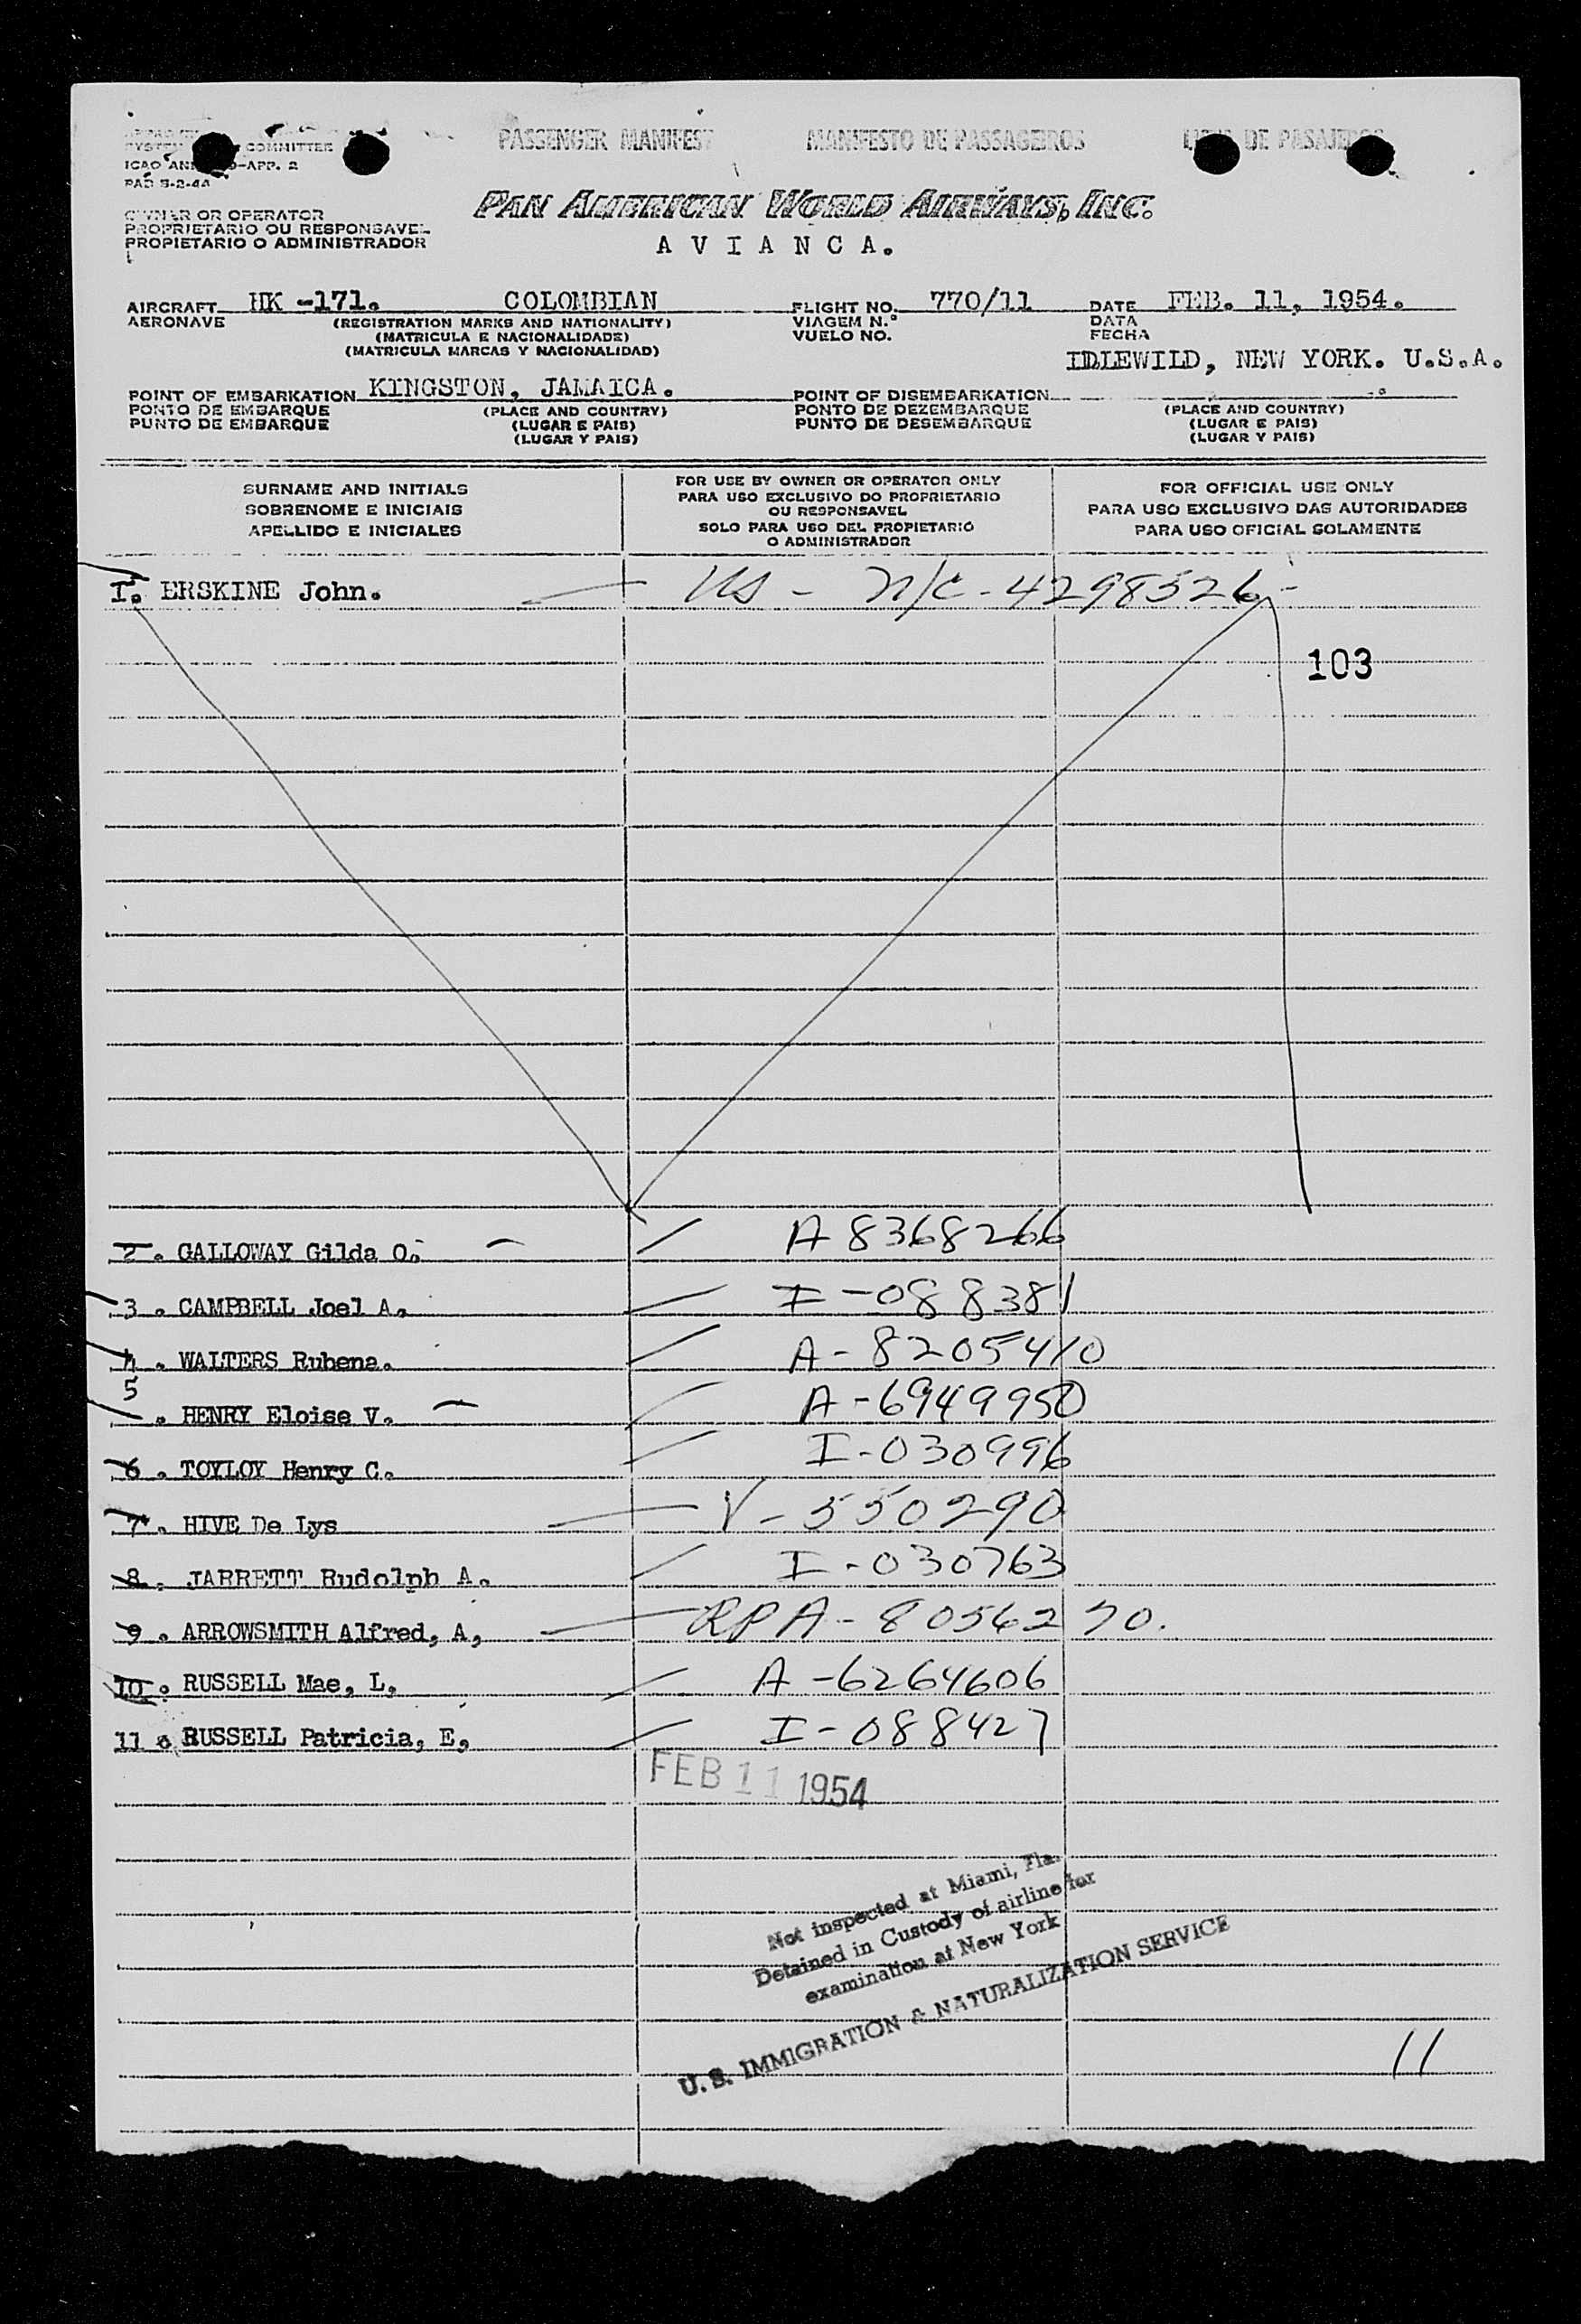 PASSENGER MANIFEST MANIFESTO DE PASSAGEIROS DE PASAJEROS
SYSTEM COMMITTEE
ICAO ANN 9-APP. 2
PAD S-2-4A
PAN AMERICAN WORLD AIRWAYS, INC.
OWNER OR OPERATOR
PROPRIETARIO OU RESPONSAVEL
PROPIETARIO O ADMINISTRADOR
A V I A N C A.
AIRCRAFT HK -171. COLOMBIAN FLIGHT NO. 770/11 DATE FEB. 11, 1954.
AERONAVE (REGISTRATION MARKS AND NATIONALITY) VIAGEM N.° DATA
(MATRICULA E NACIONALIDADE) VUELO NO. FECHA
(MATRICULA MARCAS Y NACIONALIDAD)
IDLEWILD, NEW YORK. U.S.A.
POINT OF EMBARKATION KINGSTON, JAMAICA. POINT OF DISEMBARKATION
PONTO DE EMBARQUE (PLACE AND COUNTRY) PONTO DE DEZEMBARQUE (PLACE AND COUNTRY)
PUNTO DE EMBARQUE (LUGAR E PAIS) PUNTO DE DESEMBARQUE (LUGAR E PAIS)
(LUGAR Y PAIS) (LUGAR Y PAIS)
SURNAME AND INITIALS
SOBRENOME E INICIAIS
APELLIDO E INICIALES
FOR USE BY OWNER OR OPERATOR ONLY
PARA USO EXCLUSIVO DO PROPRIETARIO
OU RESPONSAVEL
SOLO PARA USO DEL PROPIETARIO
O ADMINISTRADOR
FOR OFFICIAL USE ONLY
PARA USO EXCLUSIVO DAS AUTORIDADES
PARA USO OFICIAL SOLAMENTE
I. ERSKINE John. US - N/C - 4298526 -
103
2 . GALLOWAY Gilda O. A 8368266
3 . CAMPBELL Joel A. I-088381
4 . WALTERS Rubena. A-8205410
5 . HENRY Eloise V. A-6949950
6 . TOYLOY Henry C. I-030996
7 . HIVE De Lys V-550290
8 . JARRETT Rudolph A. I-030763
9 . ARROWSMITH Alfred, A, RPA-8056270.
10 . RUSSELL Mae, L, A-6264606
11 . RUSSELL Patricia, E, I-088427
FEB 11 1954
Not inspected at Miami, Fla.
Detained in Custody of airline for
examination at New York
U.S. IMMIGRATION & NATURALIZATION SERVICE
11